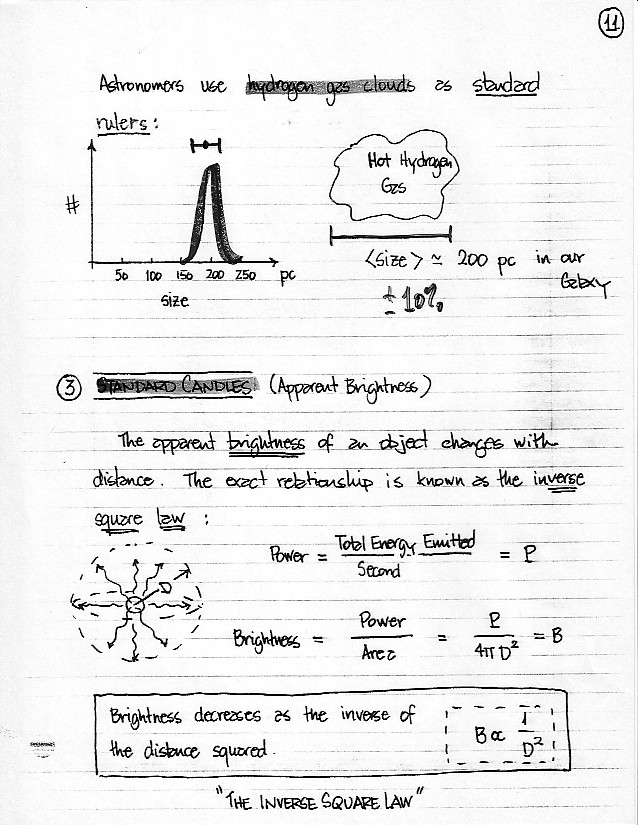 11
Astronomers use hydrogen gas clouds as standard
rulers:
#
50 100 150 200 250 pc
size
Hot Hydrogen
Gas
<size> ≃ 200 pc in our
Galaxy
± 10%
3 STANDARD CANDLES (Apparent Brightness)
The apparent brightness of an object changes with
distance. The exact relationship is known as the inverse
square law :
D
Power = Total Energy Emitted / Second = P
Brightness = Power / Area = P / 4π D² = B
Brightness decreases as the inverse of
the distance squared.
B ∝ 1 / D²
"THE INVERSE SQUARE LAW"